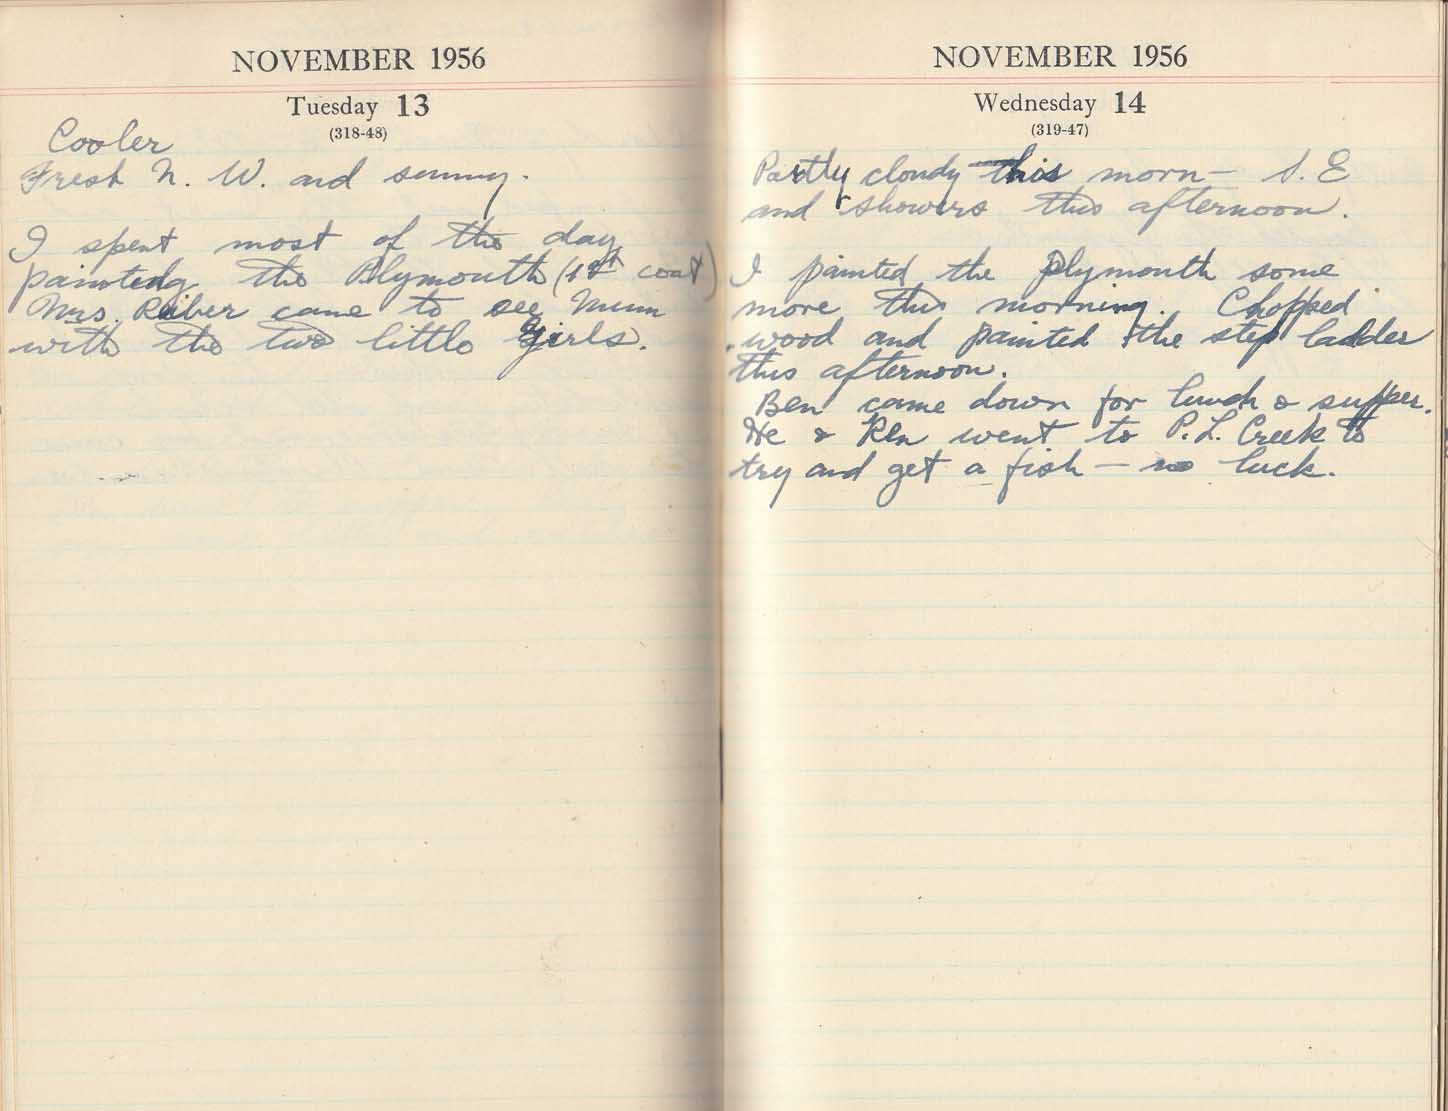 NOVEMBER 1956
Tuesday 13
(318-48)
Cooler
Fresh N. W. and sunny.
I spent most of the day
painting the Plymouth (1st coat)
Mrs. Reiber came to see Mum
with the two little girls.
NOVEMBER 1956
Wednesday 14
(319-47)
Partly cloudy this morn - S. E
and showers this afternoon.
I painted the Plymouth some
more this morning. Chopped
wood and painted the step ladder
this afternoon.
Ben came down for lunch & supper.
He & Ken went to P. L. Creek to
try and get a fish - no luck.